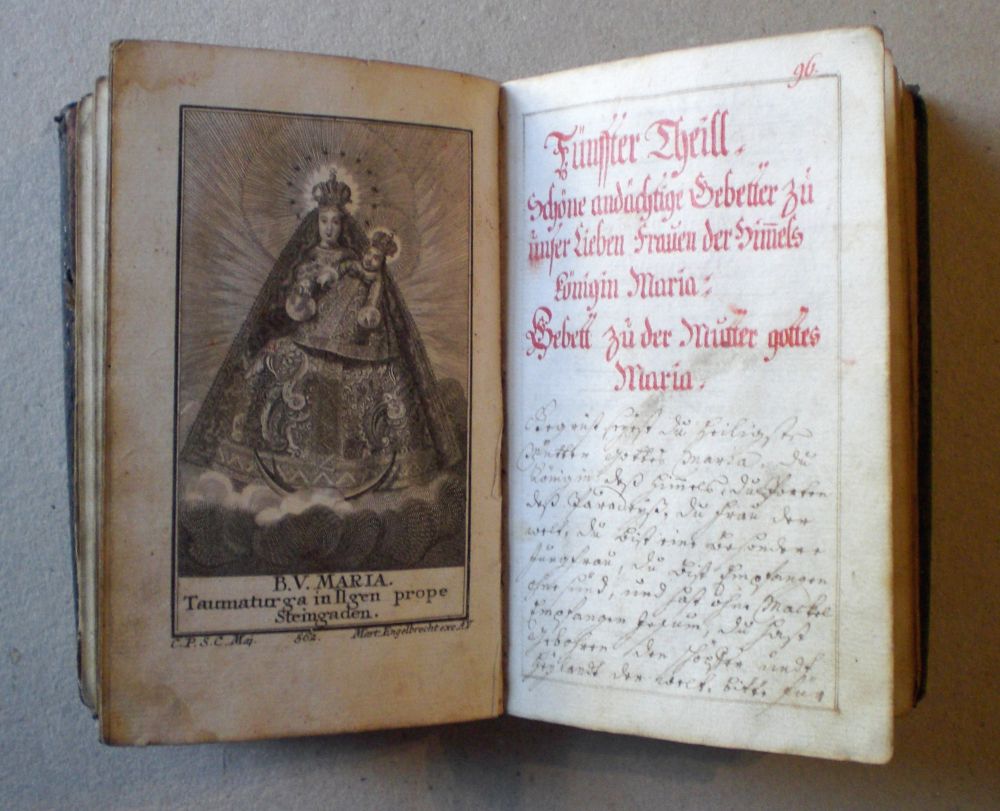 B. V. MARIA.
Taumaturga in Ilgen prope
Steingaden.
C. P. S. C. Maj. 562. Mart. Engelbrecht exc. A.V.
96.
Fünffter Theill.
Schöne andächtige Gebetter zu
unser Lieben Frauen der Him̅els
Königin Maria:
Gebett zu der Mutter gottes
Maria.
Gegrüst seyest du heiligste
Mutter Gottes Maria, du
Königin deß Himmels, du Porten
deß Paradeyß, du Frau der
welt, du bist eine besondere
Jungfrau, du bist Empfangen
ohne sünd, und hast ohne Mackel
Empfangen Jesum, du hast
Gebohren den schöpfer undt
Heylandt der welt. bitte für